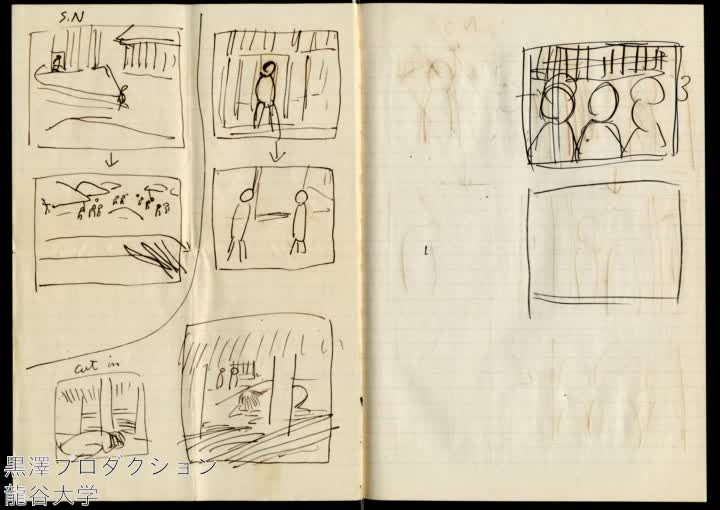 S.N
cut in
3
黒澤プロダクション
龍谷大学